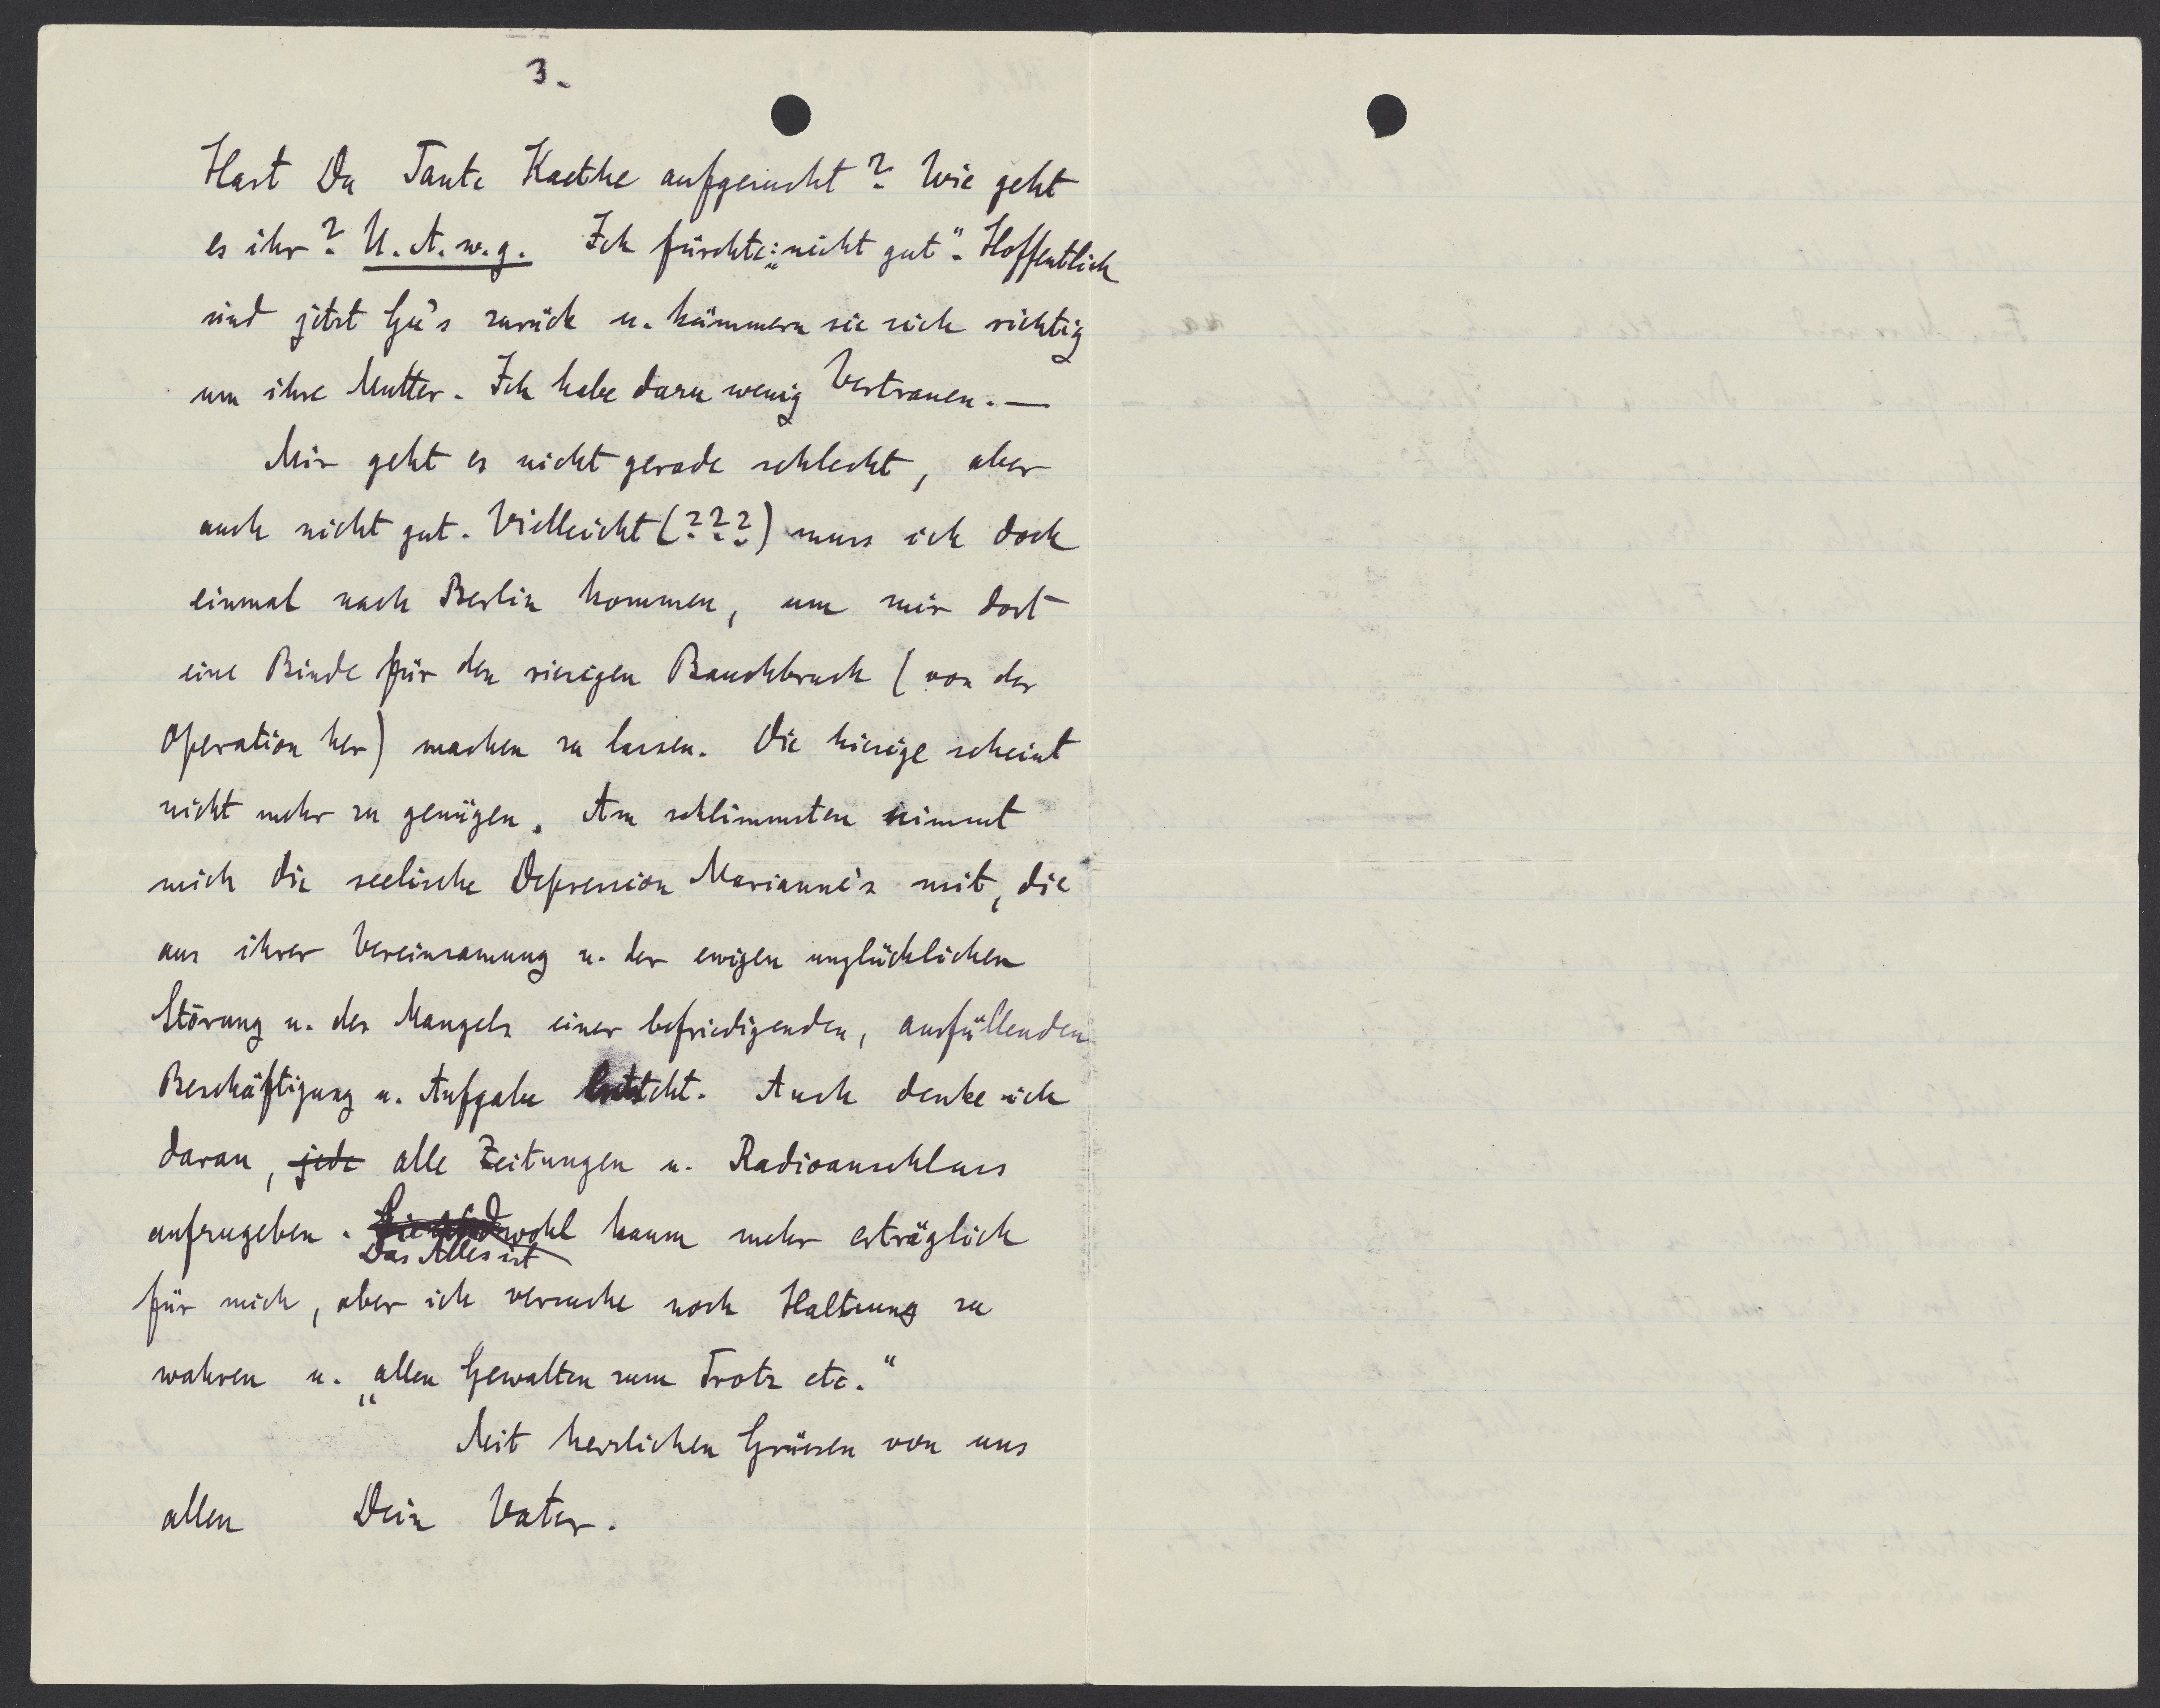 3.
Hast Du Tante Kaethe aufgesucht? Wie geht
es ihr? U. A. w. g. Ich fürchte: „nicht gut“. Hoffentlich
sind jetzt Gu's zurück u. kümmern sie sich richtig
um ihre Mutter. Ich habe dazu wenig Vertrauen. —
Mir geht es nicht gerade schlecht, aber
auch nicht gut. Vielleicht (???) muss ich doch
einmal nach Berlin kommen, um mir dort
eine Binde für den riesigen Bauchbruch (von der
Operation her) machen zu lassen. Die hiesige scheint
nicht mehr zu genügen. Am schlimmsten nimmt
mich die seelische Depression Marianne's mit, die
aus ihrer Vereinsamung u. der ewigen unglücklichen
Störung u. des Mangels einer befriedigenden, ausfüllenden
Beschäftigung u. Aufgabe entsteht. Auch denke ich
daran, jede alle Zeitungen u. Radioanschluss
aufzugeben. wohl kaum mehr erträglich
Das Alles ist
für mich, aber ich versuche noch Haltung zu
wahren u. „allen Gewalten zum Trotz etc.“
Mit herzlichen Grüssen von uns
allen Dein Vater.